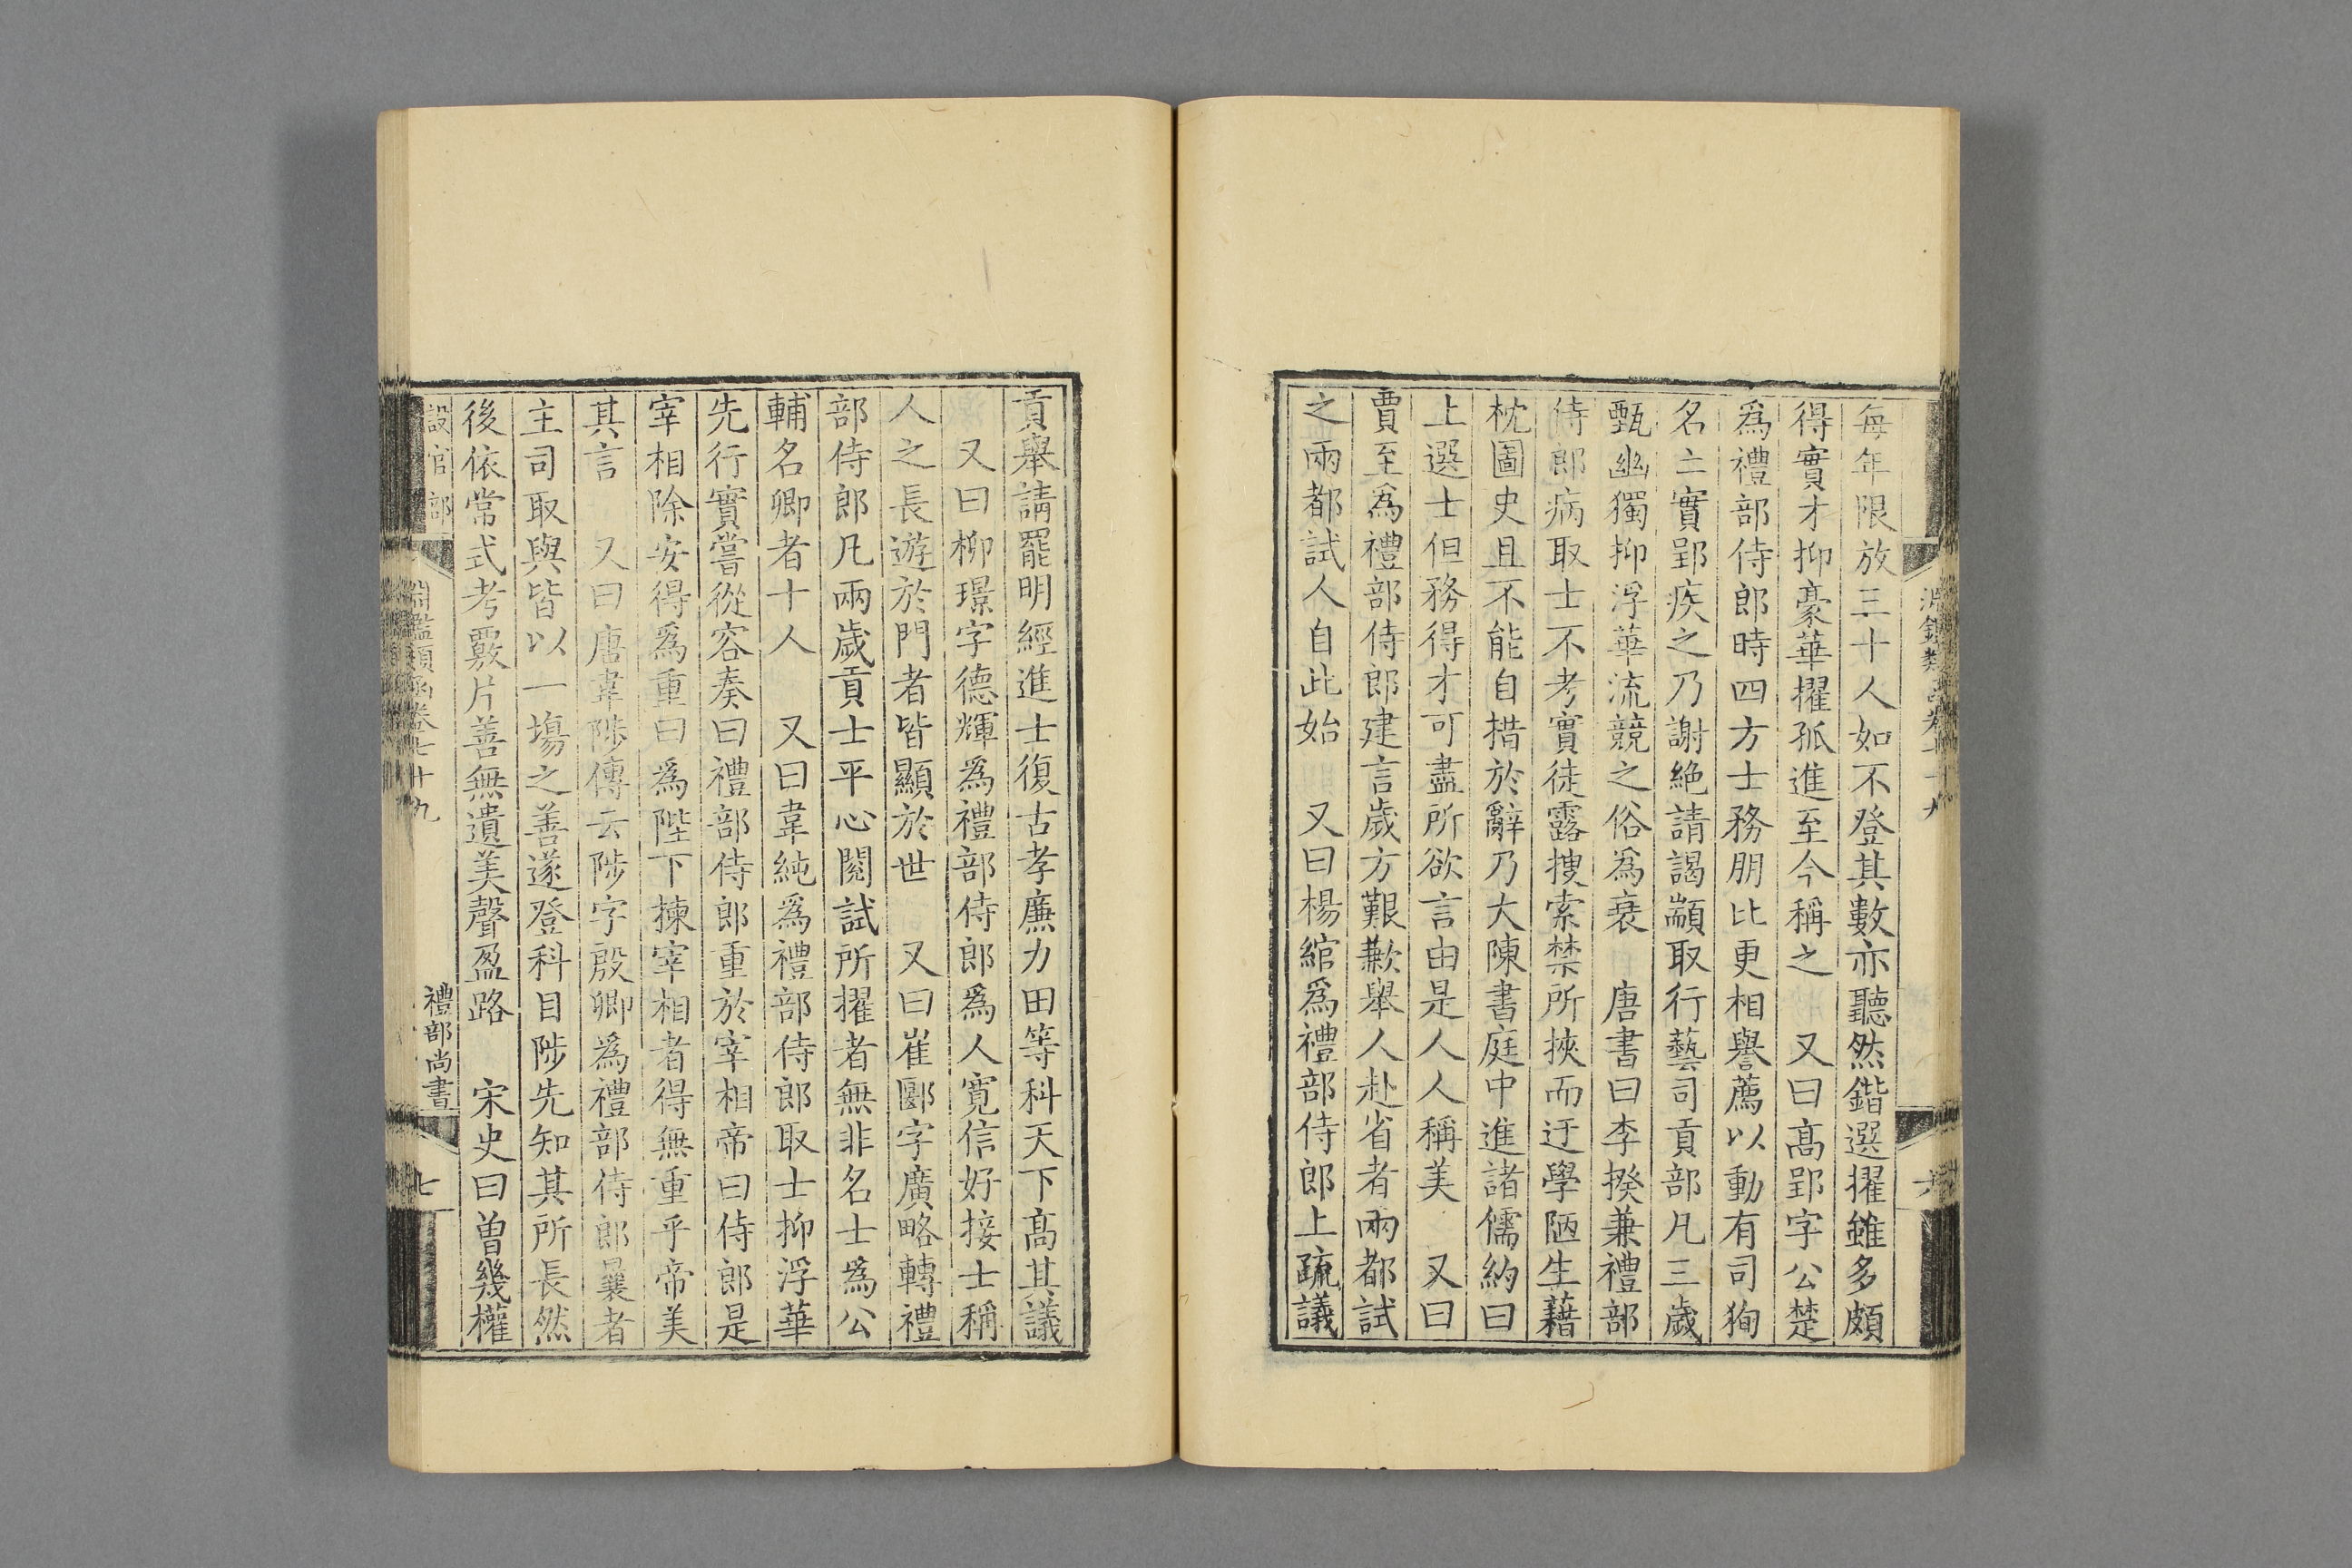 每年限放三十人如不登其數亦聽然鍇選擢雖多頗
得實才抑豪華擢孤進至今稱之　又曰髙郢字公楚
爲禮部侍郎時四方士務朋比更相譽薦以動有司狥
名亡實郢疾之乃謝絶請謁顓取行藝司貢部凡三歲
甄幽獨抑浮華流競之俗爲衰　唐書曰李揆兼禮部
侍郎病取士不考實徒露搜索禁所挾而迂學陋生藉
枕圖史且不能自措於辭乃大陳書庭中進諸儒約曰
上選士但務得才可盡所欲言由是人人稱美　又曰
賈至爲禮部侍郎建言歲方艱歉舉人赴省者兩都試
之兩都試人自此始　又曰楊綰爲禮部侍郎上疏議
貢舉請罷明經進士復古孝廉力田等科天下髙其議
又曰柳璟字德輝爲禮部侍郎爲人寬信好接士稱
人之長遊於門者皆顯於世　又曰崔郾字廣略轉禮
部侍郎凡兩歲貢士平心閱試所擢者無非名士爲公
輔名卿者十人　又曰韋純爲禮部侍郎取士抑浮華
先行實嘗從容奏曰禮部侍郎重於宰相帝曰侍郎是
宰相除安得爲重曰爲陛下揀宰相者得無重乎帝美
其言　又曰唐韋陟傳云陟字殷卿爲禮部侍郎曩者
主司取與皆以一塲之善遂登科目陟先知其所長然
後依常式考覈片善無遺美聲盈路　宋史曰曾幾權
設官部
淵鑑類函卷七十九
禮部尚書
七